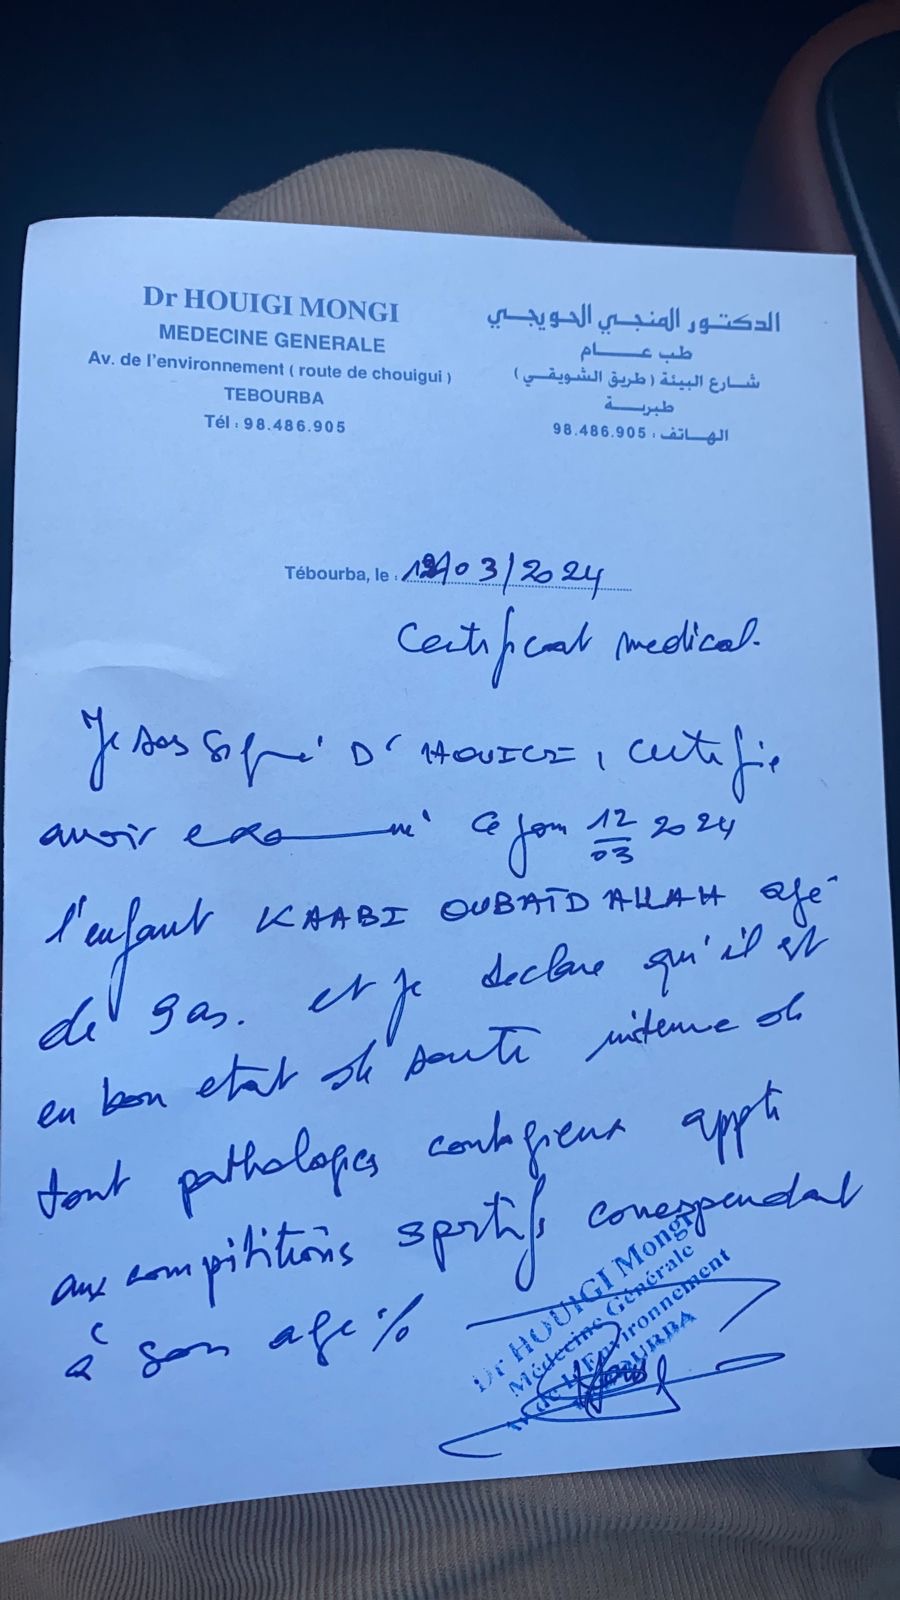 Dr HOUIGI MONGI
MEDECINE GENERALE
Av. de l'environnement ( route de chouigui )
TEBOURBA
Tél : 98.486.905
الدكتور المنجي الحويجي
طب عام
شارع البيئة (طريق الشويقي)
طبربة
الهاتف : 98.486.905
Tébourba, le : 12/03/2024
Certificat medical.
Je sous signé Dr HOUIGI, certifie
avoir examiné ce jour 12/03 2024
l'enfant KAABI OUBAID ALLAH agé
de 9 as. et je declare qu'il est
en bon etat de santé indemne de
tout pathologies contagieux
aux compititions sportifs correspendant
à son age %
Dr HOUIGI Mongi
Médecine Générale
Av de l'Environnement
TEBOURBA